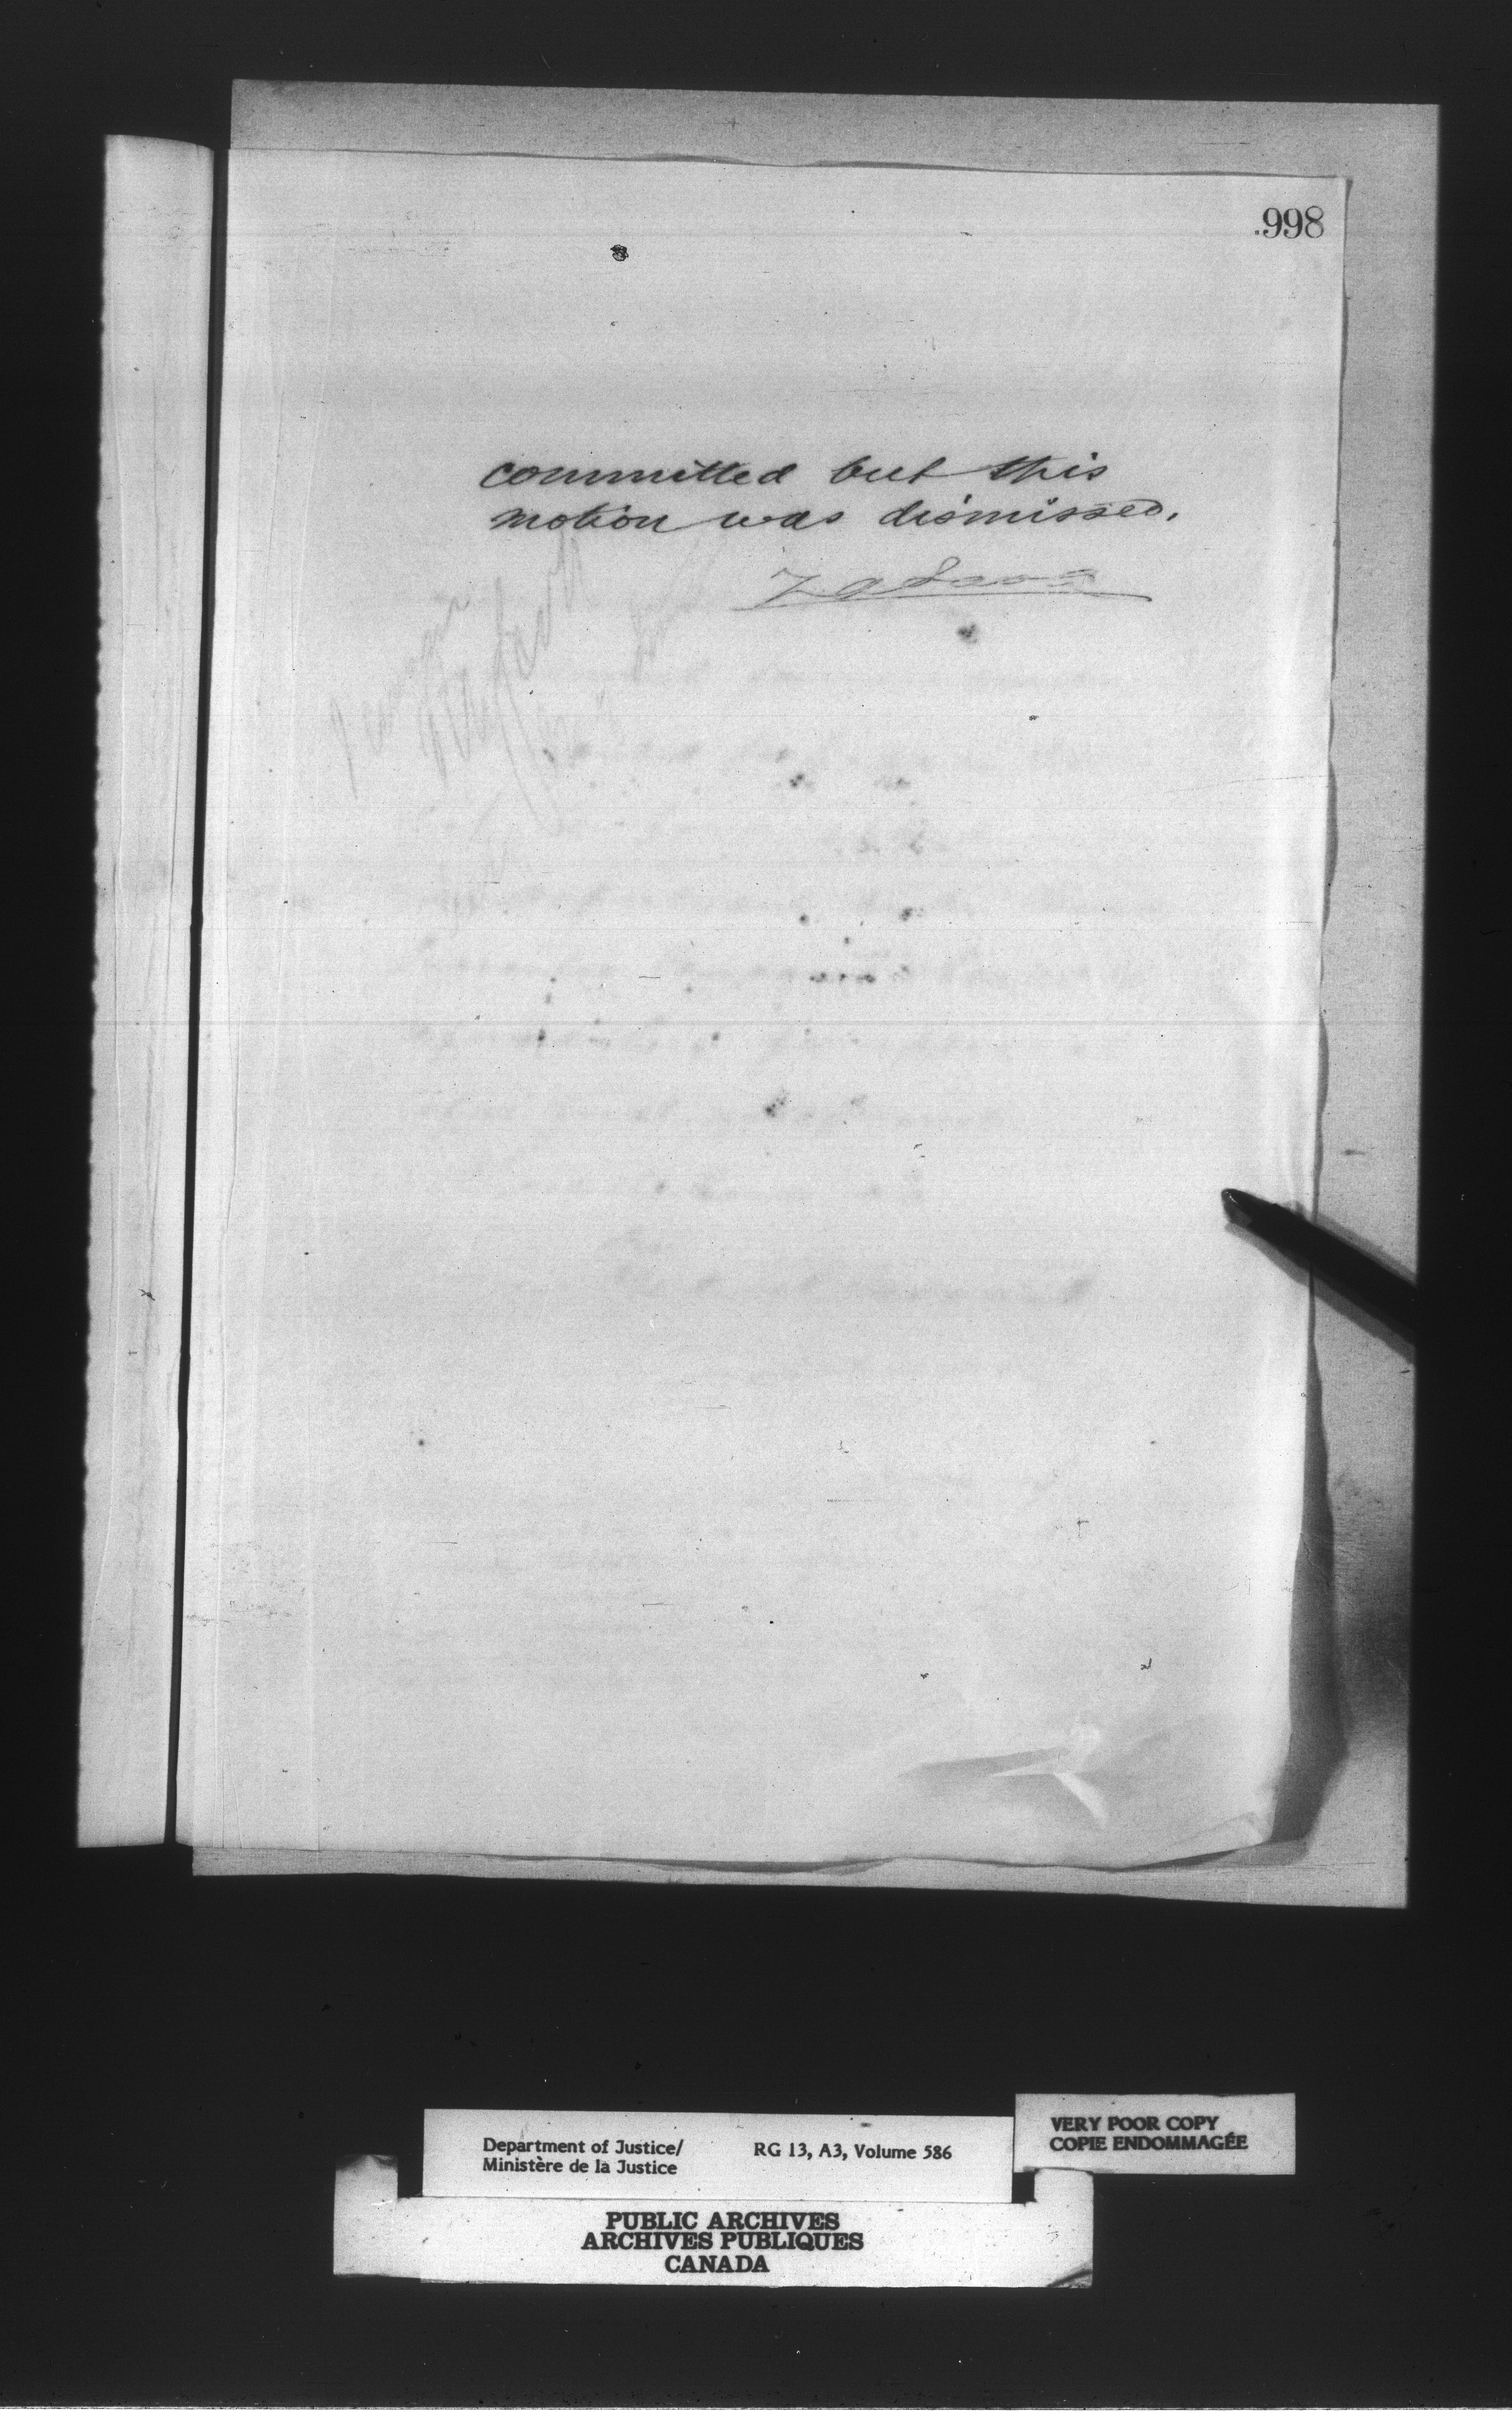 .998
committed but this
motion was dismissed.
Department of Justice/
Ministère de la Justice
RG 13, A3, Volume 586
VERY POOR COPY
COPIE ENDOMMAGÉE
PUBLIC ARCHIVES
ARCHIVES PUBLIQUES
CANADA